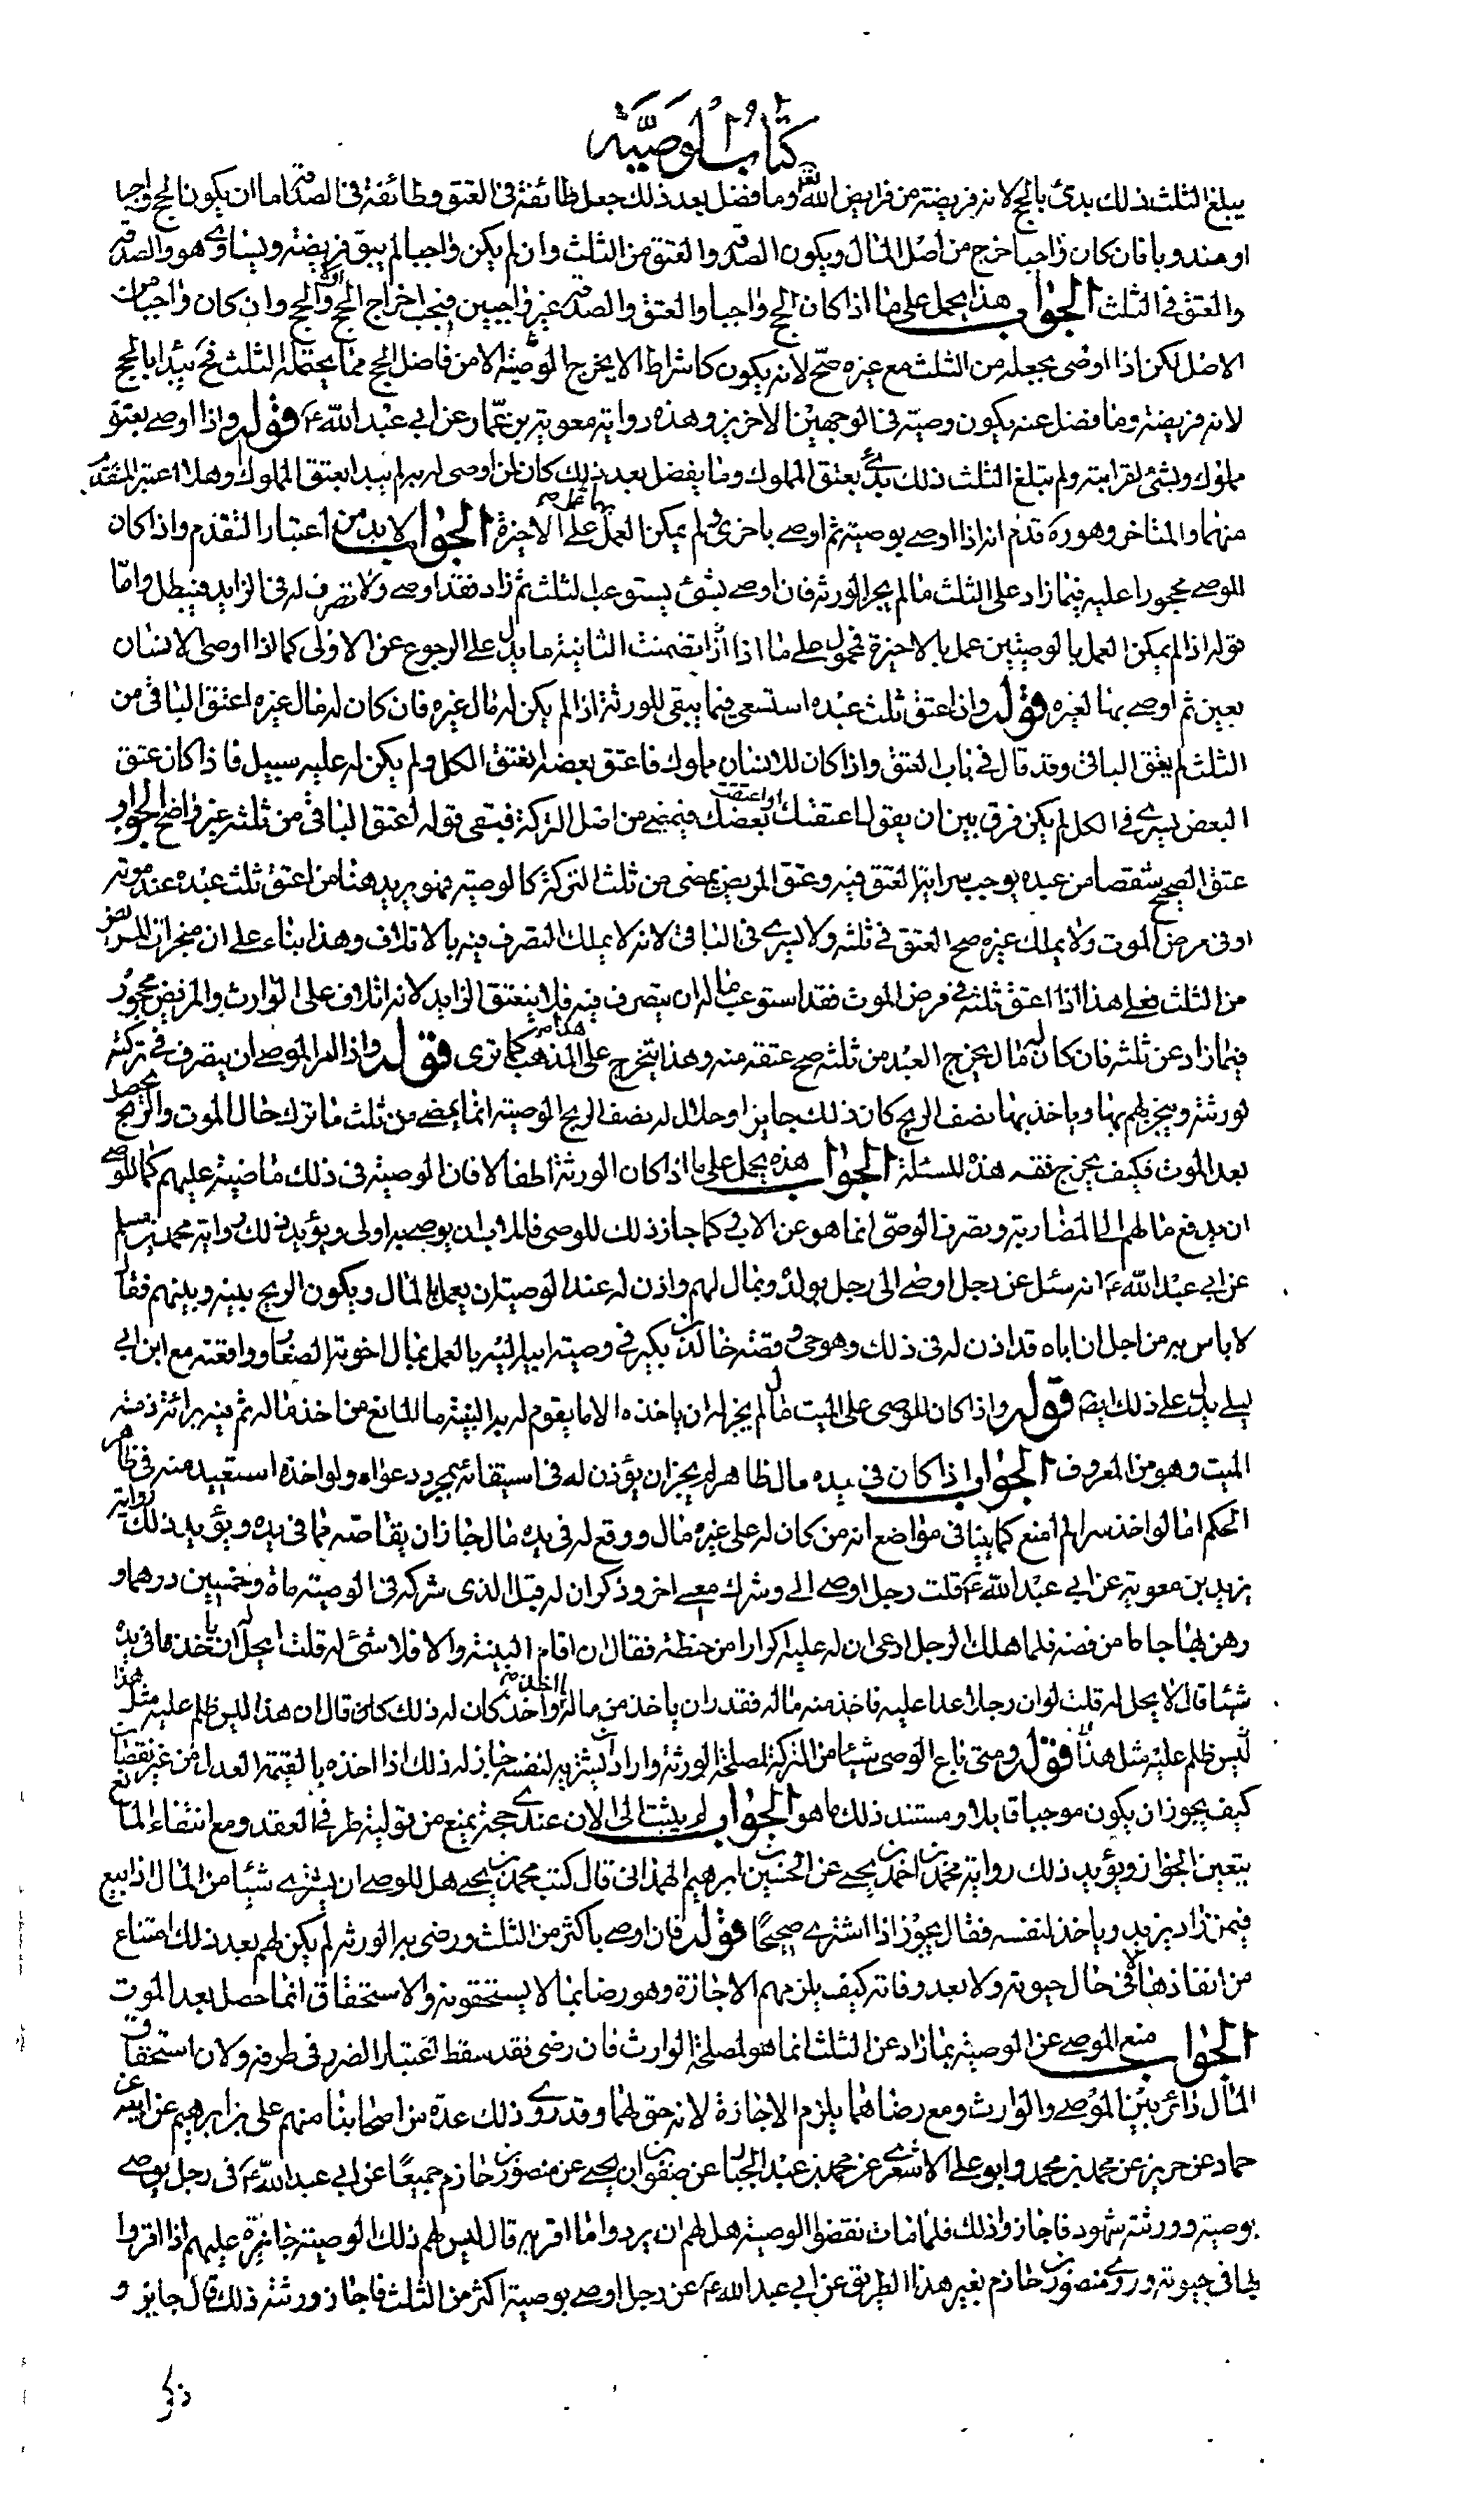 كتاب الوصية
يبلغ الثلث ذلك بدئ بالحج لانه فريضة من فرايض الله تعالى وما فضل بعد ذلك جعل طائفة في العتق وطائفة في الصدقة اما ان يكون الحج واجبا
او مندوبا فان كان واجبا خرج من اصل المال ويكون الصدقة والعتق من الثلث وان لم يكن واجبا لم يبق فريضة ويساوى هو والصدقة
والعتق في الثلث الجواب هذا يحمل على ما اذا كان الحج واجبا والعتق والصدقة غير واجبين فيجب اخراج الحج اولا والحج وان كان واجبا من
الاصل لكن اذا اوصى بجعله من الثلث مع غيره صح لانه يكون كاشتراط الا يخرج الوصية الا من فاضل الحج مما يحتمله الثلث فح يبدا بالحج
لانه فريضة وما فضل عنه يكون وصية في الوجهين الاخرين وهذه رواية معوية بن عمار عن ابي عبد الله ع قوله واذا اوصى بعتق
مملوك وبشئ لقرابته ولم يبلغ الثلث ذلك بدئ بعتق المملوك وما يفضل بعد ذلك كان لمن اوصى له به لم يبدا بعتق المملوك وهلا اعتبر المتقدم
منهما والمتاخر وهو ره قدم انه اذا اوصى بوصية ثم اوصى باخرى ولم يمكن العمل بهما عمل على الاخيرة الجواب لا بد من اعتبار التقدم واذا كان
الموصى محجورا عليه فيما زاد على الثلث ما لم يجز الورثة فان اوصى بشئ يستوعب الثلث ثم زاد فقد اوصى ولا تصرف له في الزايد فيبطل واما
قوله اذا لم يمكن العمل بالوصيتين عمل بالاخيرة فمحمول على ما اذا تضمنت الثانية ما يدل على الرجوع عن الاولى كما اذا اوصى لانسان
بعين ثم اوصى بها لغيره قوله واذا اعتق ثلث عبده استسعى فيما يبقى للورثة اذا لم يكن له مال غيره فان كان له مال غيره اعتق الباقي من
الثلث لم يعتق الباقي وقد قال في باب العتق واذا كان للانسان مملوك فاعتق بعضه انعتق الكل ولم يكن له عليه سبيل فاذا كان عتق
البعض يسرى في الكل لم يكن فرق بين ان يقول اعتقتك او اعتقت بعضك فيمضى من اصل التركة فيبقى قوله اعتق الباقي من ثلثه غير واضح الجواب
عتق الصحيح شقصا من عبده يوجب سراية العتق فيه وعتق المريض يمضى من ثلث التركة كالوصية فهو يريد هنا من اعتق ثلث عبده عند موته
او في مرض الموت ولا يملك غيره صح العتق في ثلثه ولا يسرى في الباقي لانه لا يملك التصرف فيه بالاتلاف وهذا بناء على ان منجزات المريض
من الثلث فعلى هذا اذا اعتق ثلثه في مرض الموت فقد استوعب ما له ان يتصرف فيه فلا ينعتق الزايد لانه اتلاف على الوارث والمريض محجور
فيما زاد عن ثلثه فان كان له مال يخرج العبد من ثلثه صح عتقه منه وهذا يتخرج على هذا المذهب كما ترى قوله واذا امر الموصى ان يتصرف في تركته
لورثته ويتجر لهم بها وياخذ بها نصف الربح كان ذلك جايزا وحلال له نصف الربح الوصية انما يمضى من ثلث ما ترك حال الموت والربح يحصل
بعد الموت فكيف يخرج فقه هذه المسئلة الجواب هذه يحمل على ما اذا كان الورثة اطفالا فان الوصية في ذلك ماضية عليهم كما للوصى
ان يدفع مالهم الى المضاربة وتصرف الوصى انما هو عن الاب فكما جاز ذلك للوصى فللاب ان يوصى به اولى ويؤيد ذلك رواية محمد بن مسلم
عن ابي عبد الله ع انه سئل عن رجل اوصى الى رجل بولده وبمال لهم واذن له عند الوصية ان يعمل بالمال ويكون الربح بينه وبينهم فقال
لا باس به من اجل ان اباه قد اذن له في ذلك وهو حى وقصة خالد بن بكير في وصية ابيه اليه بالعمل بمال اخوته الصغار وواقعته مع ابن ابي
ليلى يدل على ذلك ايضا قوله واذا كان للوصى على الميت مال لم يجز له ان ياخذه الا ما يقوم له به البينة ما المانع من اخذ ماله ثم فيه برائة ذمة
الميت وهو من المعروف الجواب اذا كان في يده مال ظاهر لم يجز ان يؤذن له في استيفائه بمجرد دعواه ولو اخذه استعيد منه في ظاهر
الحكم اما لو اخذ سرا لم امنع كما بينا في مواضع انه من كان له على غيره مال ووقع له في يده مال جاز ان يقاصه مما في يده ويؤيد ذلك رواية
بريد بن معوية عن ابي عبد الله ع قلت رجل اوصى الى وشرك معى اخر وذكر ان له قبل الذى شركه في الوصية ماة وخمسين درهما و
رهن بها جاما من فضة فلما هلك الرجل ادعى ان له عليه اكرارا من حنطة فقال ان اقام البينة والا فلا شئ له قلت ايحل له ان ياخذ مما في يده
شيئا قال لا يحل له قلت لو ان رجلا عدا عليه فاخذ منه ماله فقدر ان ياخذ من ماله ما اخذ كان له ذلك قال ان هذا ليس مثل هذا
ليس ظلم عليه مثل هذا قوله ومتى باع الوصى شيئا من التركة لمصلحة الورثة واراد ان يشتريه لنفسه جاز له ذلك اذا اخذه بالقيمة العدل من غير نقصان
كيف يجوز ان يكون موجبا قابلا ومستند ذلك ما هو الجواب لم يثبت الى الان عندى حجة يمنع من تولية طرفى العقد ومع انتفاء المانع
يتعين الجواز ويؤيد ذلك رواية محمد بن احمد بن يحيى عن الحسين بن ابرهيم الهمذانى قال كتب محمد بن يحيى هل للوصى ان يشترى شيئا من المال اذا بيع
فيمن زاد يزيد وياخذ لنفسه فقال يجوز اذا اشترى صحيحا قوله فان اوصى باكثر من الثلث ورضى به الورثة لم يكن لهم بعد ذلك امتناع
من انفاذها لا في حال حيوته ولا بعد وفاته كيف يلزمهم الاجازة وهو رضا بما لا يستحقونه والاستحقاق انما حصل بعد الموت
الجواب منع الموصى عن الوصية بما زاد عن الثلث انما هو لمصلحة الوارث فان رضى فقد سقط اعتبار الضرر في طرفه ولان استحقاق
المال دائر بين الموصى والوارث ومع رضاهما يلزم الاجازة لانه حق لهما وقد روى ذلك عدة من اصحابنا منهم على بن ابرهيم عن ابيه عن
حماد عن حريز عن محمد بن محمد وابو على الاشعرى عن محمد بن عبد الجبار عن صفوان بن يحيى عن منصور بن حازم جميعا عن ابي عبد الله ع في رجل يوصى
بوصية وورثته شهود فاجازوا ذلك فلما مات نقضوا الوصية هل لهم ان يردوا ما اقر به قال ليس لهم ذلك الوصية جايزة عليهم اذا اقروا
بها في حيوته وروى منصور بن حازم بغير هذا الطريق عن ابي عبد الله ع عن رجل اوصى بوصية اكثر من الثلث فاجاز ورثته ذلك قال جايز و